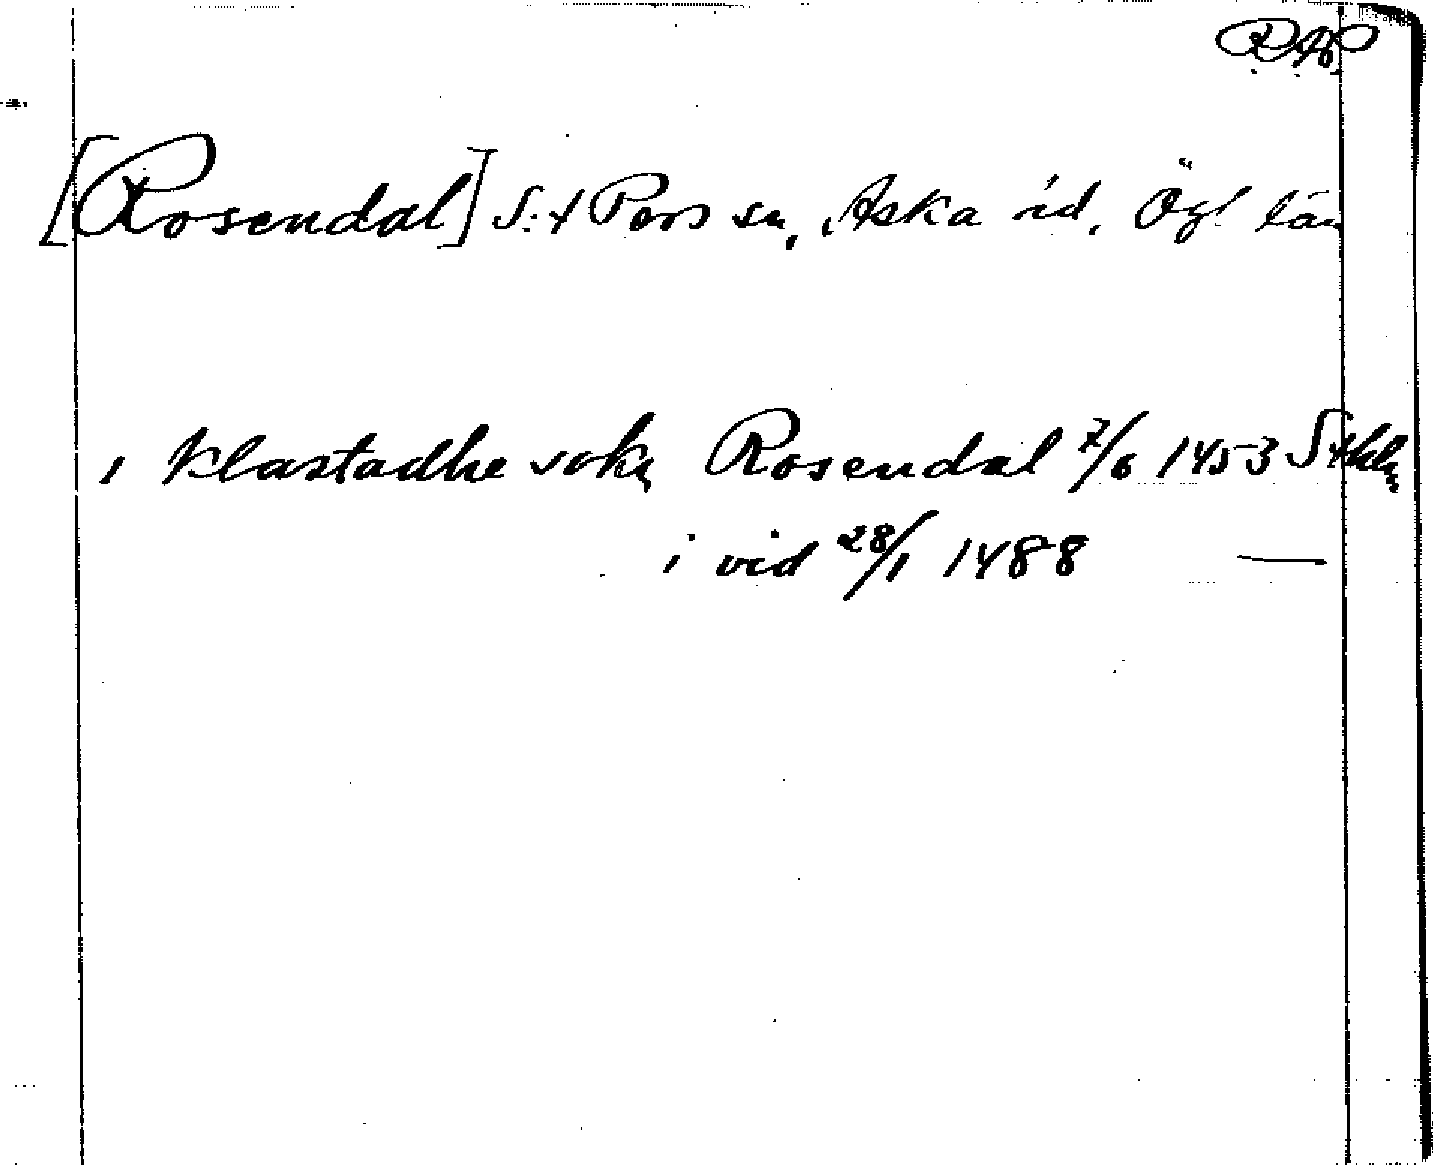 RAP
[Rosendal] S:t Pers sn, Aska hd, Ögl län
i Klastadhe sokn Rosendal 7/6 1453 Sthlm
i vid 28/1 1488 —